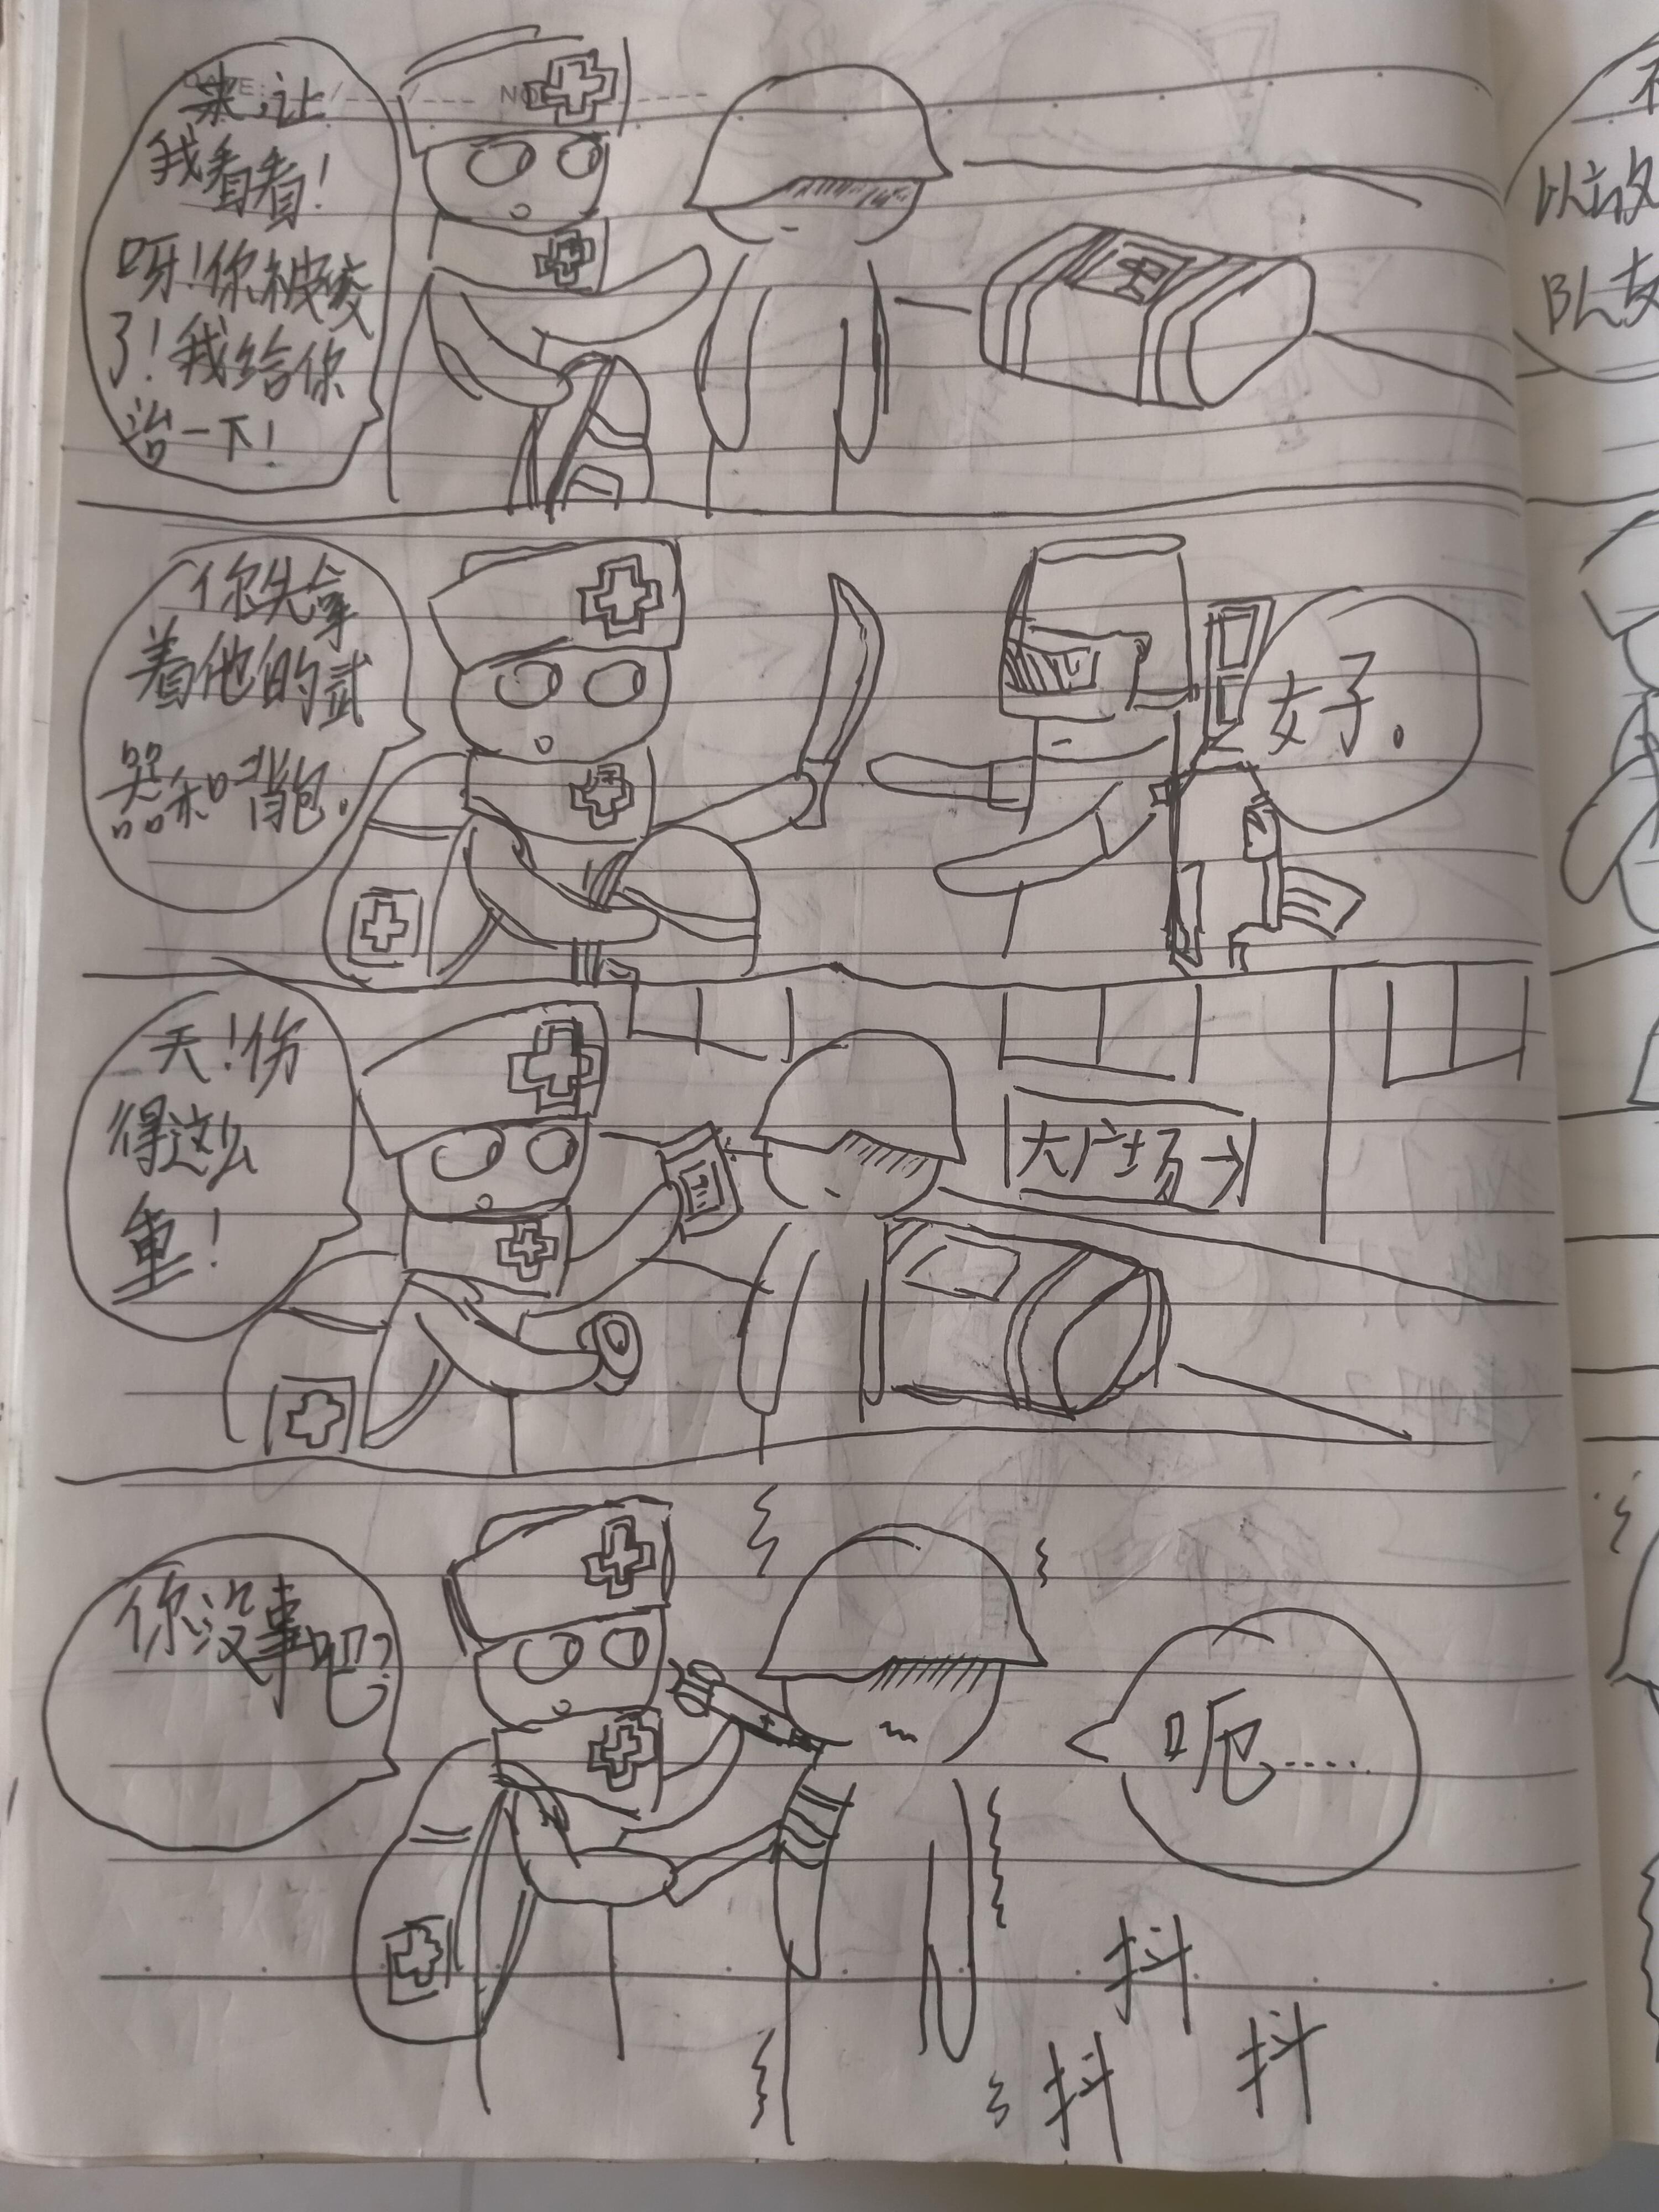 来，让
我看看！
呀！你被咬
了！我给你
治一下！
你先拿
着他的武
器和背包.
好。
天！伤
得这么
重！
大广场→
你没事吧？
呃......
抖
抖
抖
以故
BL